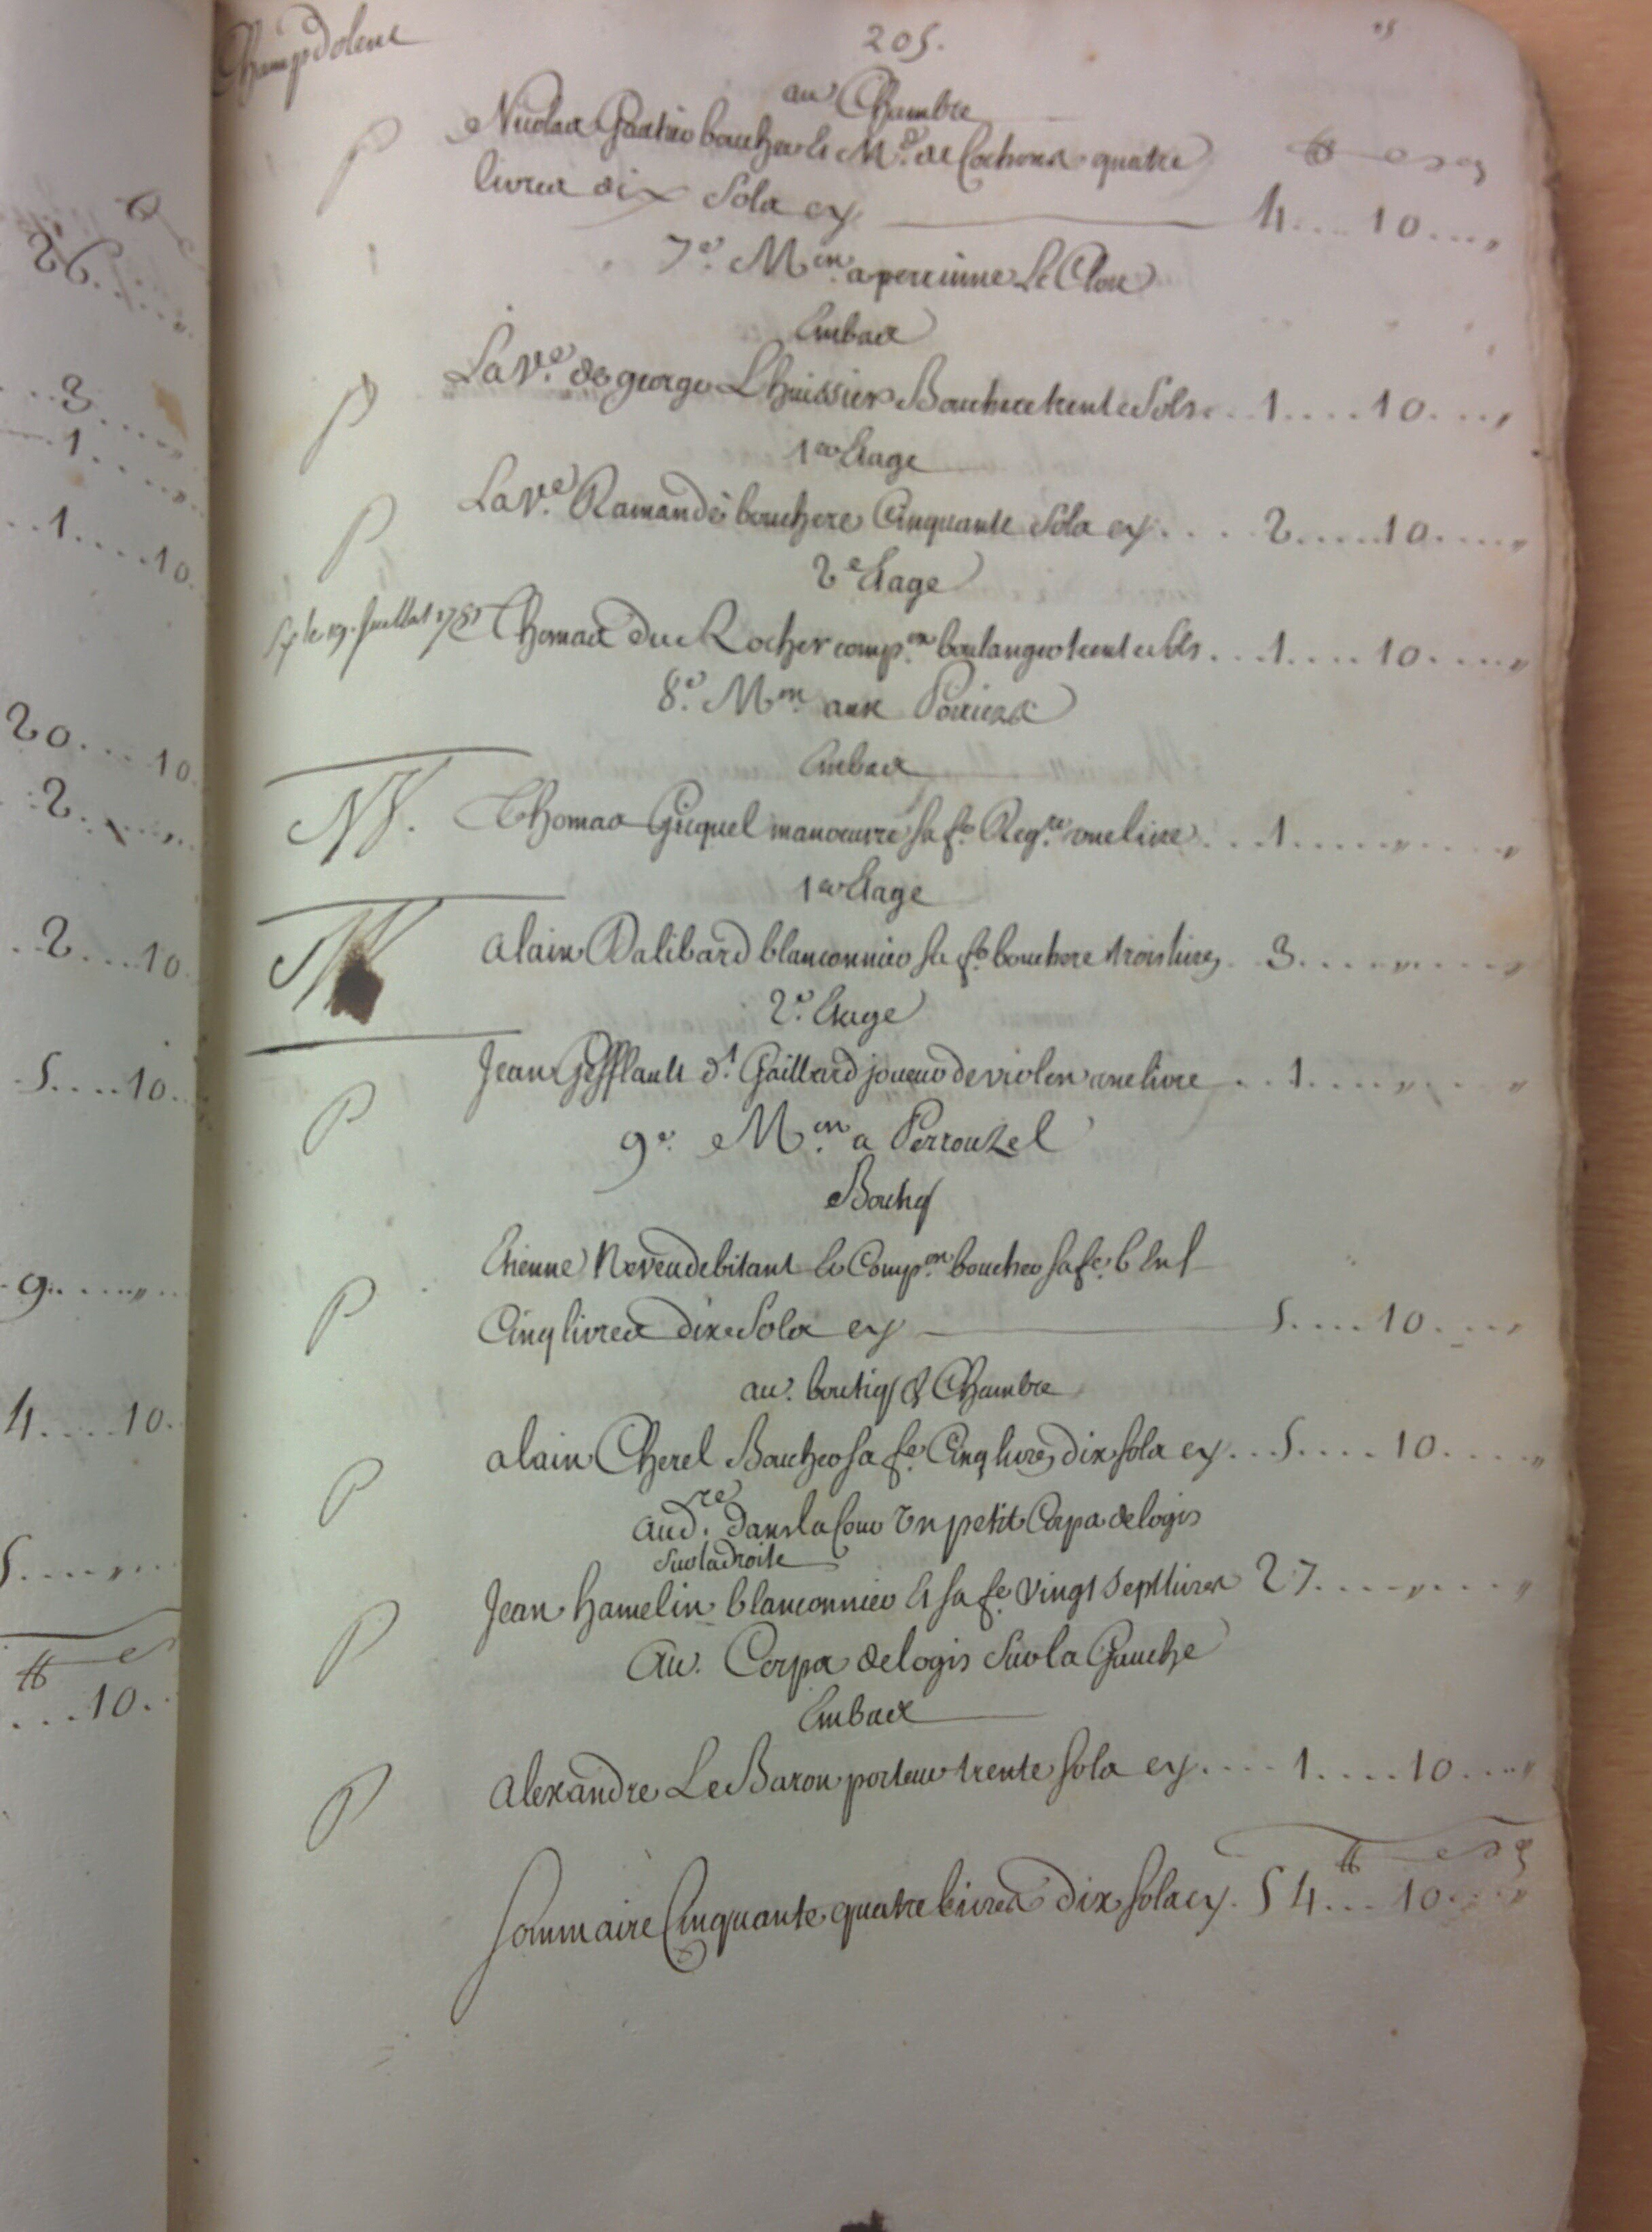 Champdolent
205.
au. Chambre
Nicolas Gautier boucher & Md. de Cochons quatre
livres dix Sols cy 4.... 10.... „
7e. Mon. a perrinne Le Clou
Embas
La Ve. de george Lhuissier Bouchere trente Sols... 1.... 10.... „
1er Etage
La Ve. Ramandé bouchere Cinquante Sols cy.... 2..... 10..... „
2e Etage
Thomas du Rocher comp.on boulanger trente sols... 1.... 10..... „
8e. Mon. aux Poiriers
Embas
NV. Thomas Gicquel manoeuvre sa fe. Reg.re une livre... 1...... „..... „
1er Etage
NV Alain Dalibard blanconnier sa fe. bouchere trois livres. 3...... „..... „
2e. Etage
P Jean Gefflault dt. Gaillard joueur de violon une livre... 1..... „.... „
9e. Mon. a Perrouzel
Boutiq
Etienne Neveu debitant & Comp.on boucher sa fe.
P Cinq livres dix Sols cy 5.... 10.... „
au. boutiq & Chambre
P alain Cherel Boucher sa fe. Cinq livres dix sols cy... 5.... 10..... „
aud.re dans la Cour un petit Corps de logis
sur la droite
P Jean hamelin blanconnier & sa fe. vingt Sept livres 27..... „.... „
Au. Corps de logis sur la Gauche
Embas
P Alexandre Le Baron porteur trente sols cy.... 1.... 10..... „
Sommaire Cinquante quatre livres dix sols cy. 54... 10.... „